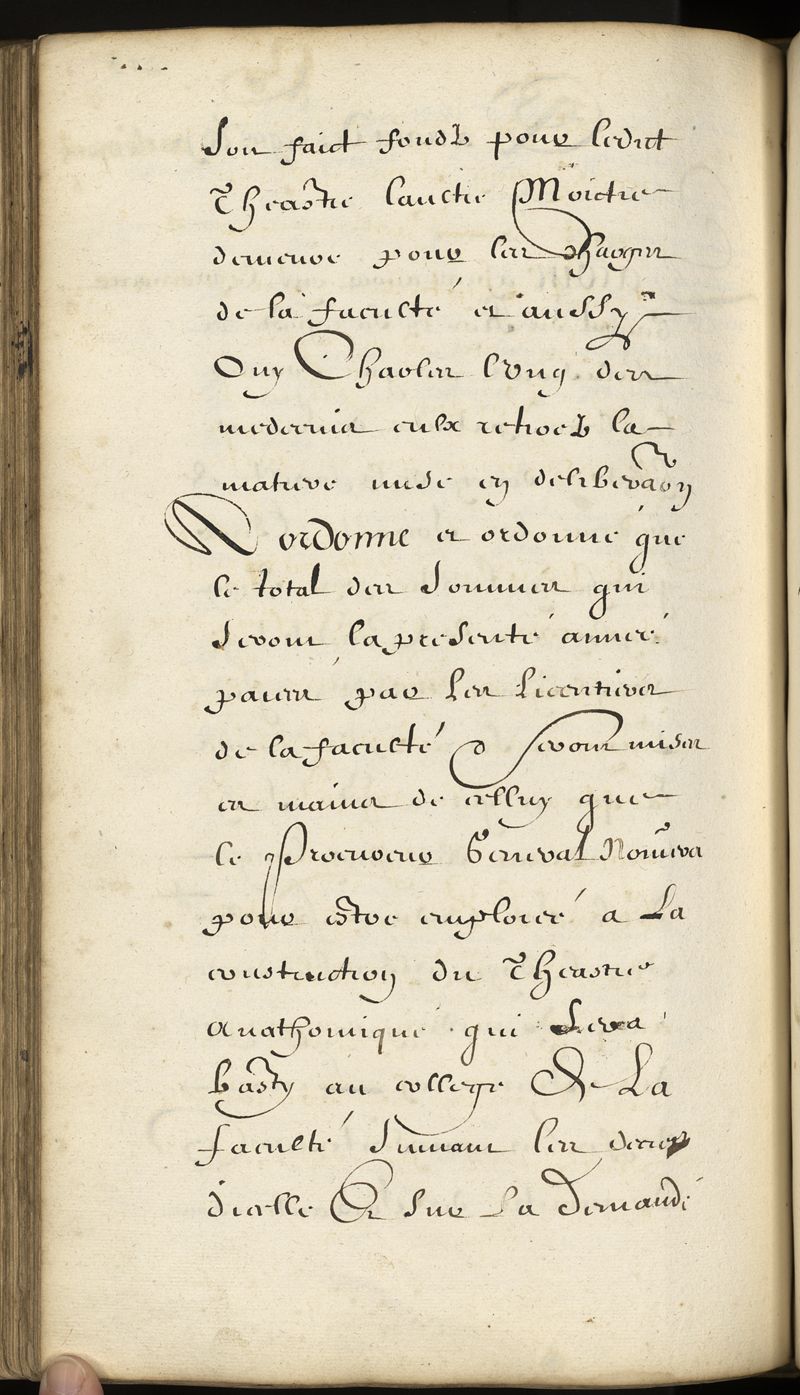 soit faict fondz pour ledict
Theastre lauctre Moictie
demeure pour les Charges
de la faculté et aussy
Ouy Charles lung des
medecins eulx retirez la
matiere mise en deliberaon
A ordonné et ordonne que
le total des sommes qui
seront la presente année
paiées par les licentiers
de la faculté seront mises
es mains de celluy que
le Procureur General Nomera
pour estre emploiée a La
construction du Theastre
Anathomique qui sera
basty au college De La
faculté suivant les
dicelle Et sur La Demande